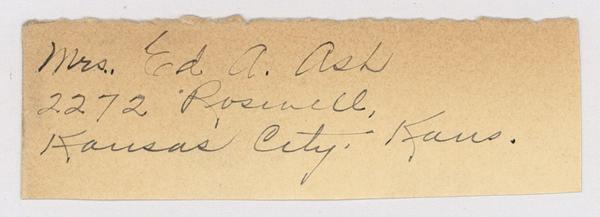 Mrs. Ed A. Ash
2272 Roswell,
Kansas City. Kans.